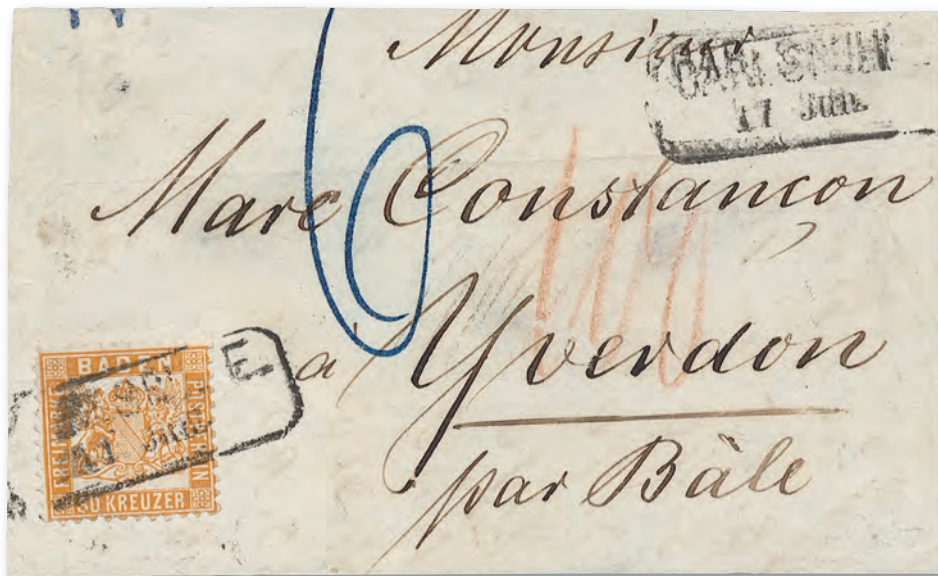 6
Monsieur
CARLSRUH
17 Jun.
Marc Constançon
à Yverdon
par Bâle
BADEN
FREIMARKE
POSTVEREIN
30 KREUZER
E
17 Jun.